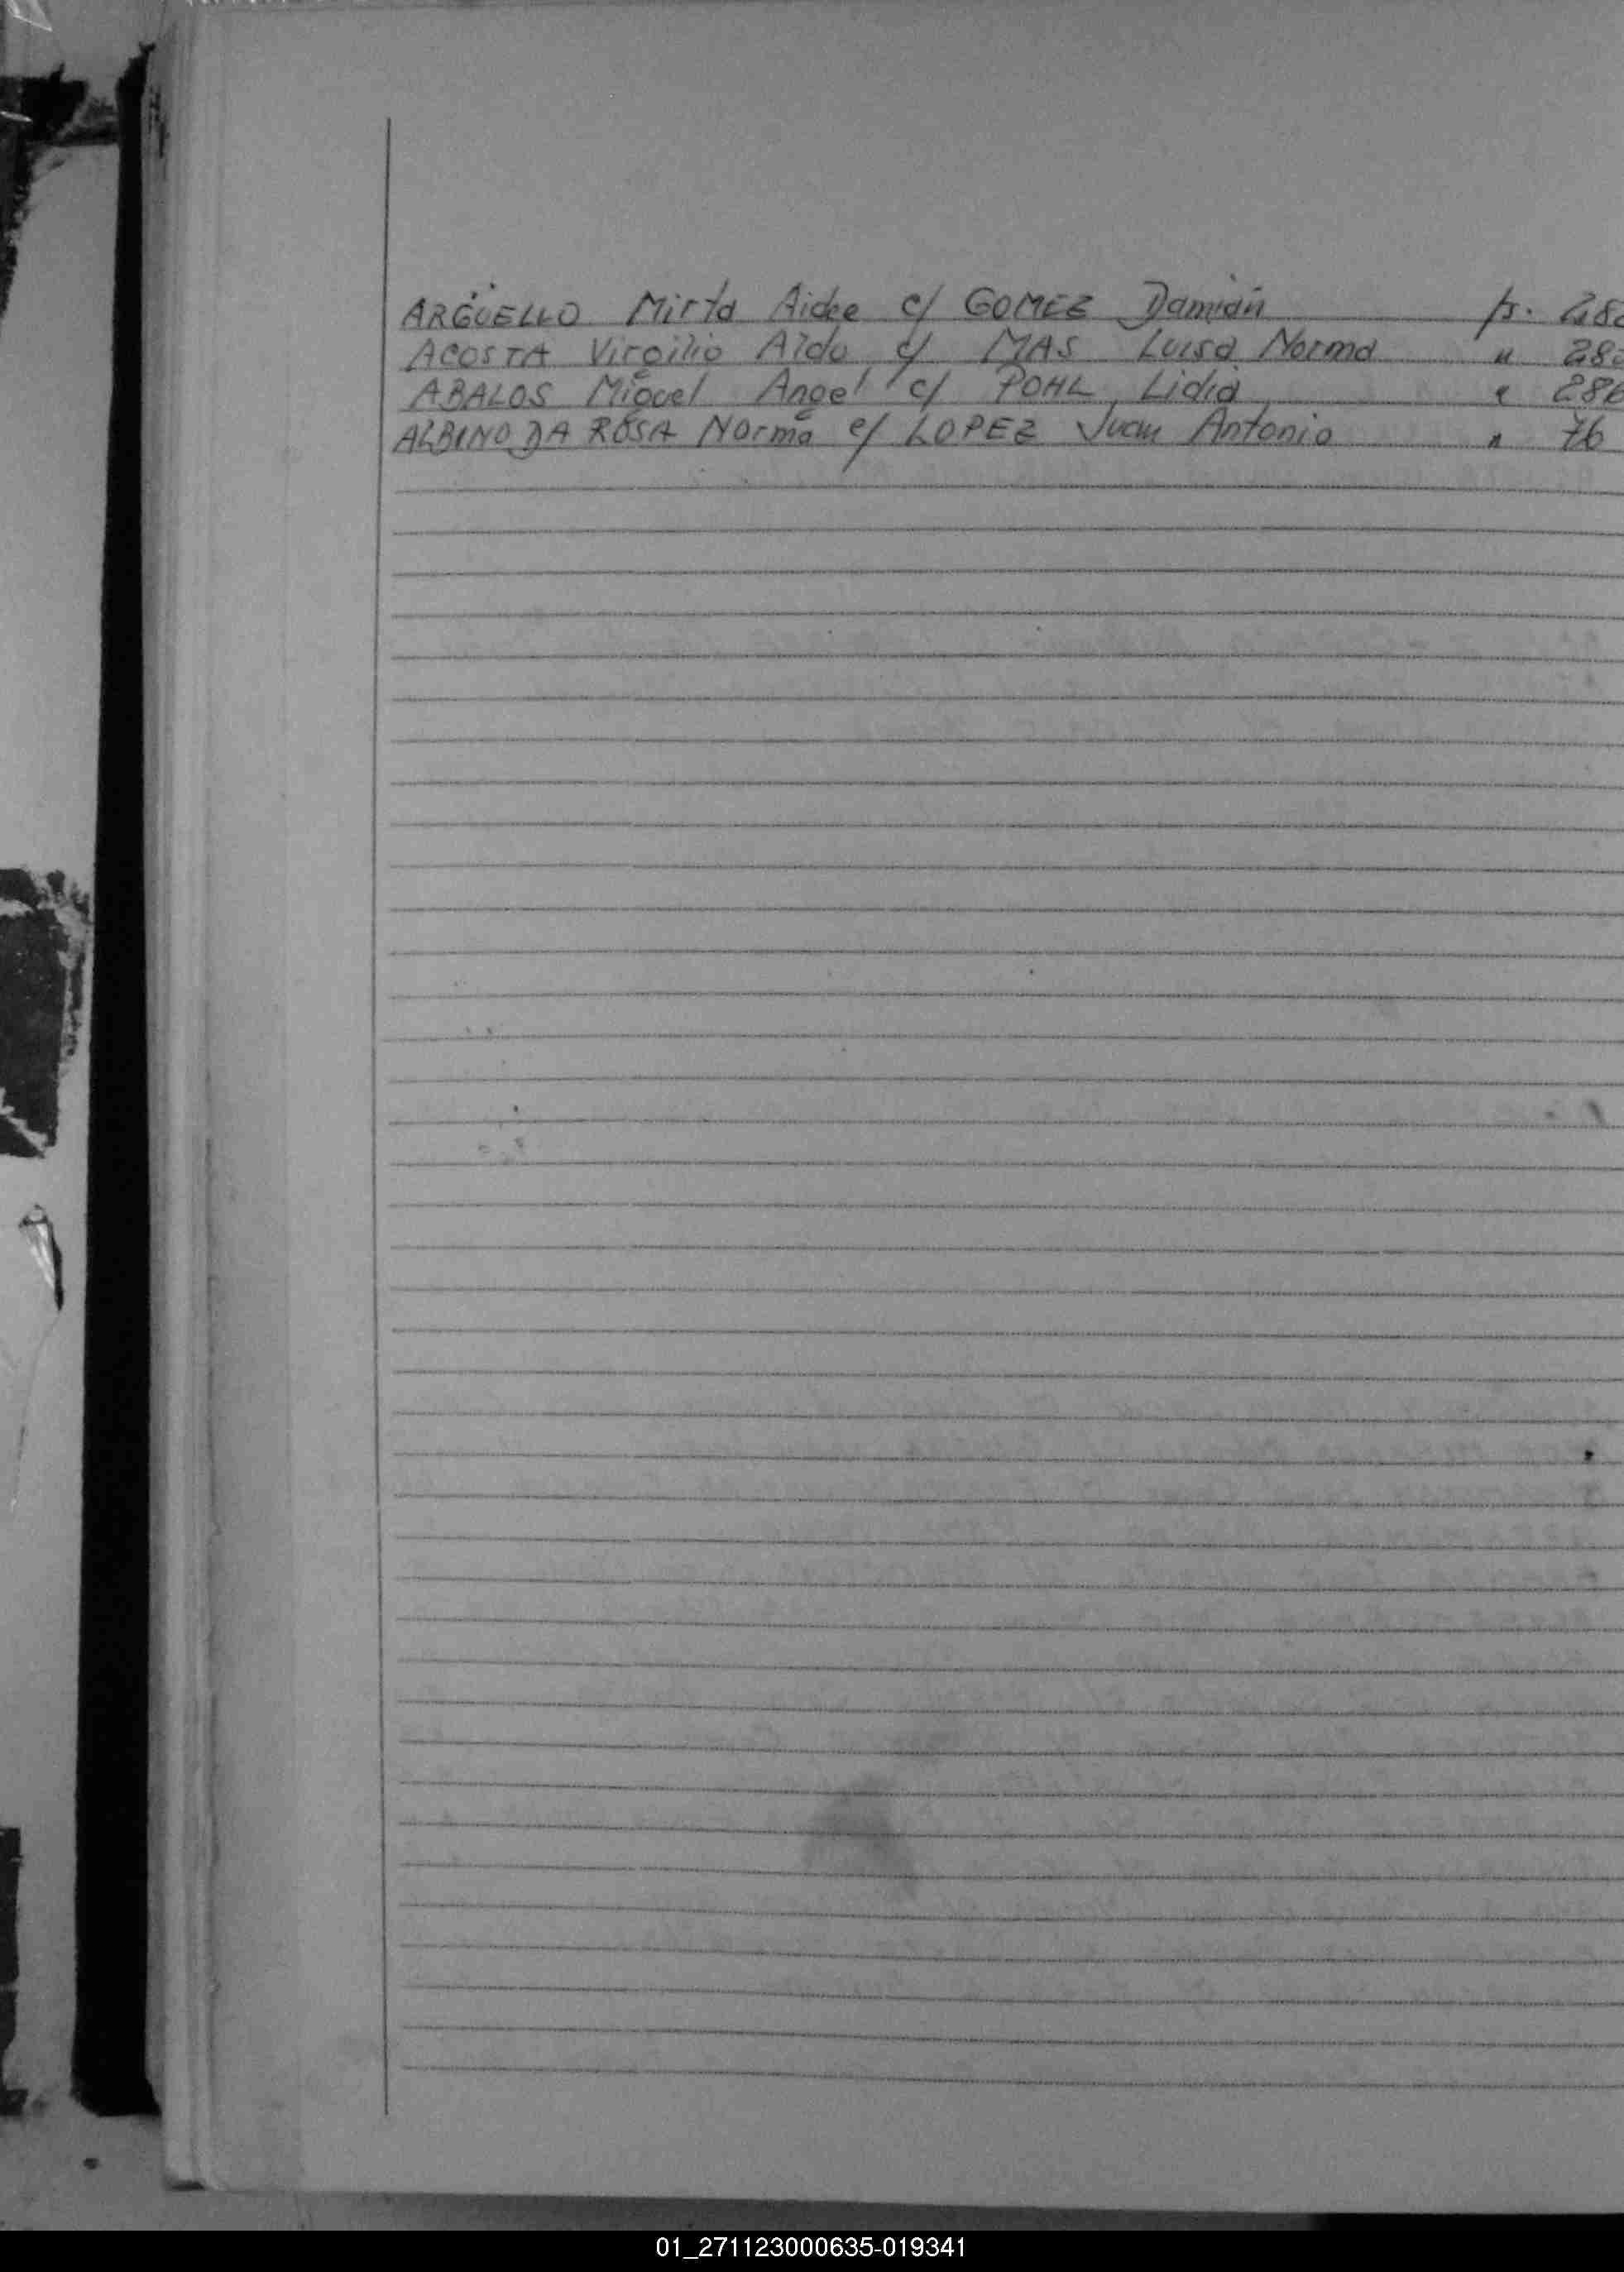 ARGÜELLO Mirta Aidee c/ GOMEZ Damián fs. 28
ACOSTA Virgilio Aldo c/ MAS Luisa Norma " 28
ABALOS Miguel Angel c/ POHL Lidia " 286
ALBINO DA ROSA Norma c/ LOPEZ Juan Antonio " 76
01_271123000635-019341